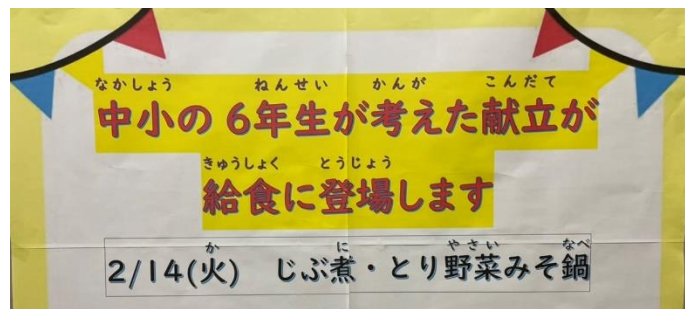 なかしょう ねんせい かんが こんだて
中小の 6年生が考えた献立が
きゅうしょく とうじょう
給食に登場します
か に やさい なべ
2/14(火) じぶ煮・とり野菜みそ鍋